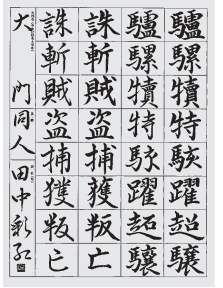 驢騾犢特駭躍超驤
驢騾犢特駭躍超驤
誅斬賊盗捕獲叛亡
誅斬賊盗捕獲叛亡
大 門同人 田中